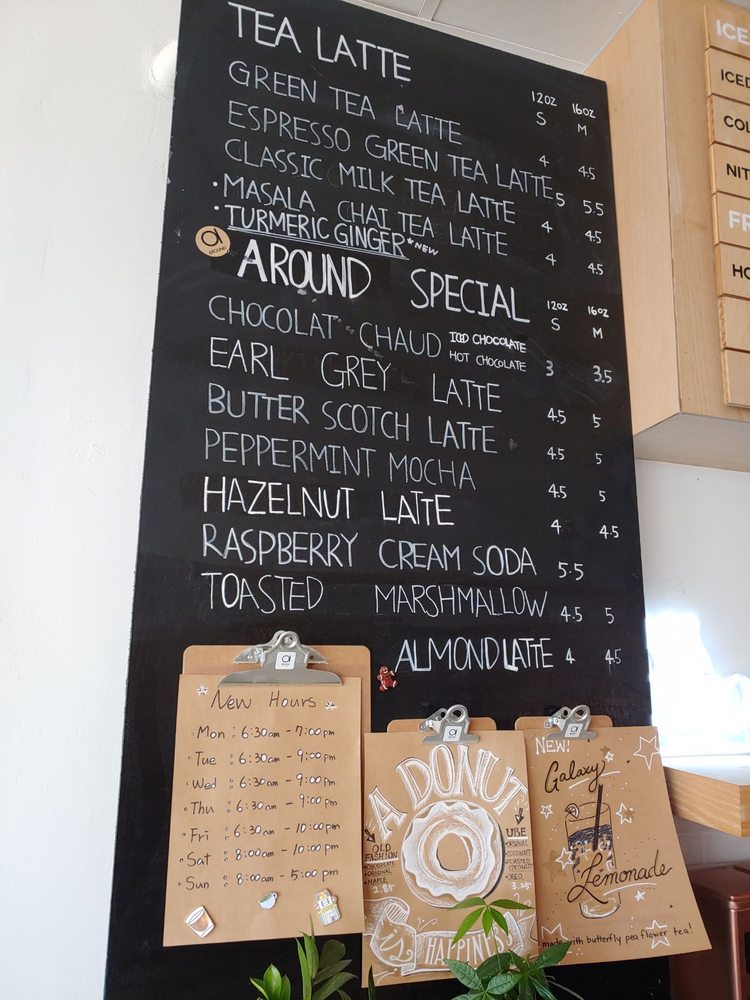 TEA LATTE
12OZ 16OZ
S M
GREEN TEA LATTE 4 4.5
ESPRESSO GREEN TEA LATTE 5 5.5
CLASSIC MILK TEA LATTE 4 4.5
• MASALA CHAI TEA LATTE 4 4.5
• TURMERIC GINGER *NEW
a
AROUND
AROUND SPECIAL
12OZ 16OZ
S M
CHOCOLAT CHAUD ICED CHOCOLATE
HOT CHOCOLATE 3 3.5
EARL GREY LATTE 4.5 5
BUTTER SCOTCH LATTE 4.5 5
PEPPERMINT MOCHA 4.5 5
HAZELNUT LATTE 4 4.5
RASPBERRY CREAM SODA 5.5
TOASTED MARSHMALLOW 4.5 5
ALMOND LATTE 4 4.5
New Hours
• Mon : 6:30am - 7:00pm
• Tue : 6:30am - 9:00pm
• Wed : 6:30am - 9:00pm
• Thu : 6:30am - 9:00pm
• Fri : 6:30am - 10:00pm
• Sat : 8:00am - 10:00pm
• Sun : 8:00am - 5:00pm
A DONUT
OLD
FASHION
• CHOCOLATE
• ORIGINAL
• MAPLE
2.85
UBE
• ORIGINAL
• COCONUT
• TOASTED
COCONUT
• OREO
3.25
is
HAPPINESS
NEW!
Galaxy
Lemonade
made with butterfly pea flower tea!
ICE
ICED
COL
NIT
FR
HO